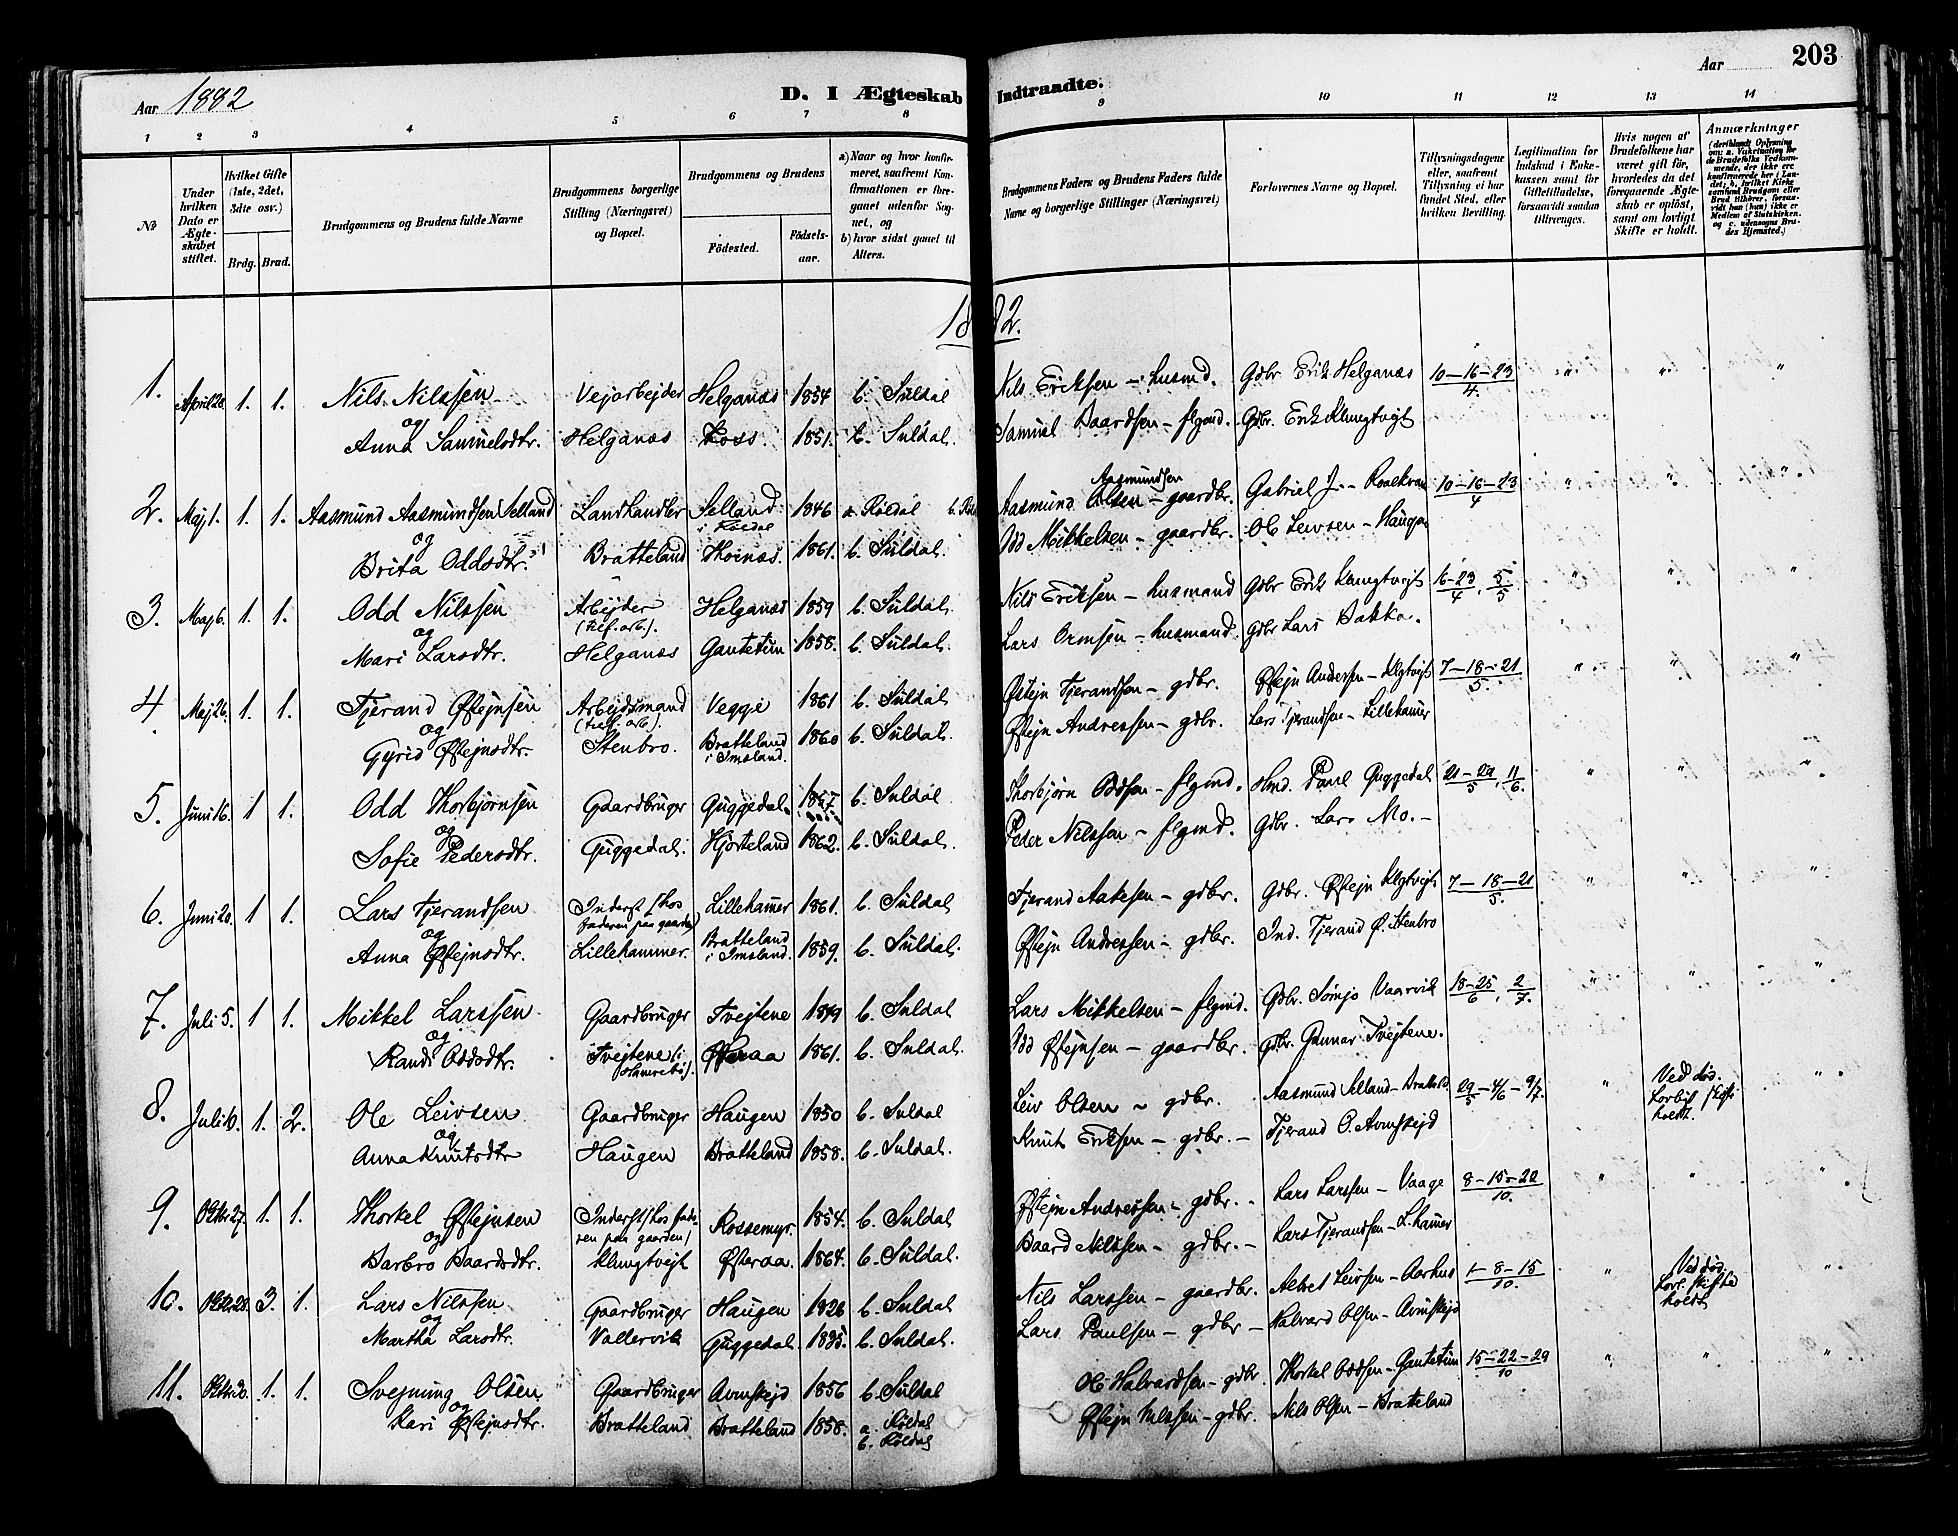 Aar 1882
D. I Ægteskab Indtraadte.
Aar
203
1 2 3 4 5 6 7 8 9 10 11 12 13 14
№
Under hvilken Dato er Ægteskabet stiftet.
Hvilket Gifte (1ste, 2det, 3die osv.)
Brdg. Brud.
Brudgommens og Brudens fulde Navne
Brudgommens borgerlige Stilling (Næringsvei) og Bopæl.
Brudgommens og Brudens
Födested. Födselsaar.
a) Naar og hvor konfirmeret, saafremt Konfirmationen er foregaaet udenfor Sognet, og
b) hvor sidst gaaet til Alters.
Brudgommens Faders og Brudens Faders fulde Navne og borgerlige Stillinger (Næringsvei)
Forlovernes Navne og Bopæl.
Tillysningsdagene eller, saafremt Tillysning ei har fundet Sted, efter hvilken Bevilling.
Legitimation for Indskud i Enkekassen samt for Giftetilladelse, forsaavidt saadan tiltrænges.
Hvis nogen af Brudefolkene har været gift för, hvorledes da det foregaaende Ægteskab er oplöst, samt om lovligt Skifte er holdt.
Anmærkninger
(deriblandt Oplysning om: a. Vakcination for de Brudefolks Vedkommende, der ikke ere konfirmerede her i Landet; b. hvilket Kirkesamfund Brudgom eller Brud tilhörer, forsaavidt han (hun) ikke er Medlem af Statskirken, og c. udensogns Brudes Hjemsted.)
1882.
1. April 28. 1. 1. Nils Nilssen Vejarbejder Helganæs 1854 b. Suldal Nils Eriksen – husmd. Gdbr Erik Helganæs 10–16–23/4. " " "
og
Anna Samuelsdtr. Helganæs Voss. 1851. b. Suldal. Samuel Baardsen – flgmd. Gdbr. Erik Klungtvejt
2. Maj 1. 1. 1. Aasmund Aasmundsen Selland Landhandler Selland i Röldal 1846 a. Röldal Aasmund Aasmundsen – gaardbr. Gabriel J. – Roalkvam 10–16–23/4 " " "
og
Brita Oddsdtr. Bratteland Hornæs. 1861. b. Suldal. Odd Mikkelsen – gaardbr. Ole Leivsen – Haugen
3. Maj 6. 1. 1. Odd Nilssen Arbejder (telf. arb.). Helganæs 1859 b. Suldal. Nils Eriksen – husmand Gdbr Erik Klungtvejt 16–23/4, 5/5 " " "
og
Mari Larsdtr. Helganæs Gautetun 1858. b. Suldal. Lars Ormsen – husmand. Gdbr Lars Bakka.
4. Maj 26. 1. 1. Tjerand Østejnsen Arbejdsmand (telf. arb.). Vegge 1861 b. Suldal Østejn Tjerandsen – gdbr. Østejn Andersen – Klgtvejt 7–18–21/5. " " "
og
Gyrid Østejnsdtr. Stenbro. Bratteland i Imsland. 1860 b. Suldal. Østejn Andressen – gdbr. Lars Tjerandsen – Lillehamer
5. Juni 16. 1 1. Odd Thorbjørnsen Gaardbruger Guggedal. 1857 b. Suldal Thorbjørn Oddsen – flgmd. Hmd. Paul Guggedal 21–29/5, 11/6 " " "
og
Sofie Pedersdtr. Guggedal. Hjorteland 1862. b. Suldal. Peder Nilssen – flgmd. Gdbr. Lars Mo. –
6. Juni 20. 1 1. Lars Tjerandsen Inderst (hos faderen paa gaarden) Lillehamer 1861. b. Suldal Tjerand Aakesen – gdbr. Gdbr. Østejn Klgtvejt 7–18–21/5. " " "
og
Anna Østejnsdtr. Lillehammer. Bratteland i Imsland. 1859. b. Suldal. Østejn Andressen – gdbr. Ind. Tjerand Ø. Stenbro
7. Juli 5. 1 1. Mikkel Larssen Gaardbruger Tvejtene 1849 b. Suldal Lars Mikkelsen – flgmd. Gdbr. Sømjo Vaarvik 18–25/6, 2/7. " " "
og
Randi Oddsdtr. Tvejtene (i Hamrebø). Østeraa 1861. b. Suldal. Odd Østejnsen – gaardbr. Gdbr. Gunnar Tvejtene.
8. Juli 10. 1. 2. Ole Leivsen Gaardbruger Haugen 1850 b. Suldal Leiv Olsen – gdbr. Aasmund Selland – Brattld. 29/5 – 4/6 – 9/7. " Ved död. Lovligt skifte holdt. "
og
Anna Knutsdtr Haugen Bratteland 1858. b. Suldal. Knut Eriksen – gdbr. – Tjerand O. Avnskejd
9. Oktbr 27. 1. 1. Thorkel Østejnsen Inderst (hos faderen paa gaarden) Rossemyr. 1854. b. Suldal Østejn Andressen – gdbr. – Lars Larssen – Vaage 8–15–22/10. " " "
og
Barbro Baardsdtr. Klungtvejt Østeraa. 1864. b. Suldal. Baard Nilssen – gdbr. – Lars Tjerandsen – L.hamer
10. Oktbr 28. 3. 1. Lars Nilssen Gaardbruger Haugen 1826 b. Suldal Nils Larssen – gaardbr. Aelvet Leivsen – Aarhus 1–8–15/10. " Ved död. Lovl. skifte holdt "
og
Martha Larsdtr. Vallervik Guggedal. 1835. b. Suldal. Lars Paulsen – gdbr – Halvard Olsen – Avnskejd
11. Oktbr 30. 1. 1. Svejnung Olsen Gaardbruger Avnskejd 1856 b. Suldal Ole Halvardsen – gdbr. Thorkel Oddsen – Gautetun 15–22–29/10 " " "
og
Kari Østejnsdtr. Bratteland Bratteland 1858. a. Röldal b. Röldal Østejn Nilssen – gdbr. Nils Olsen – Bratteland